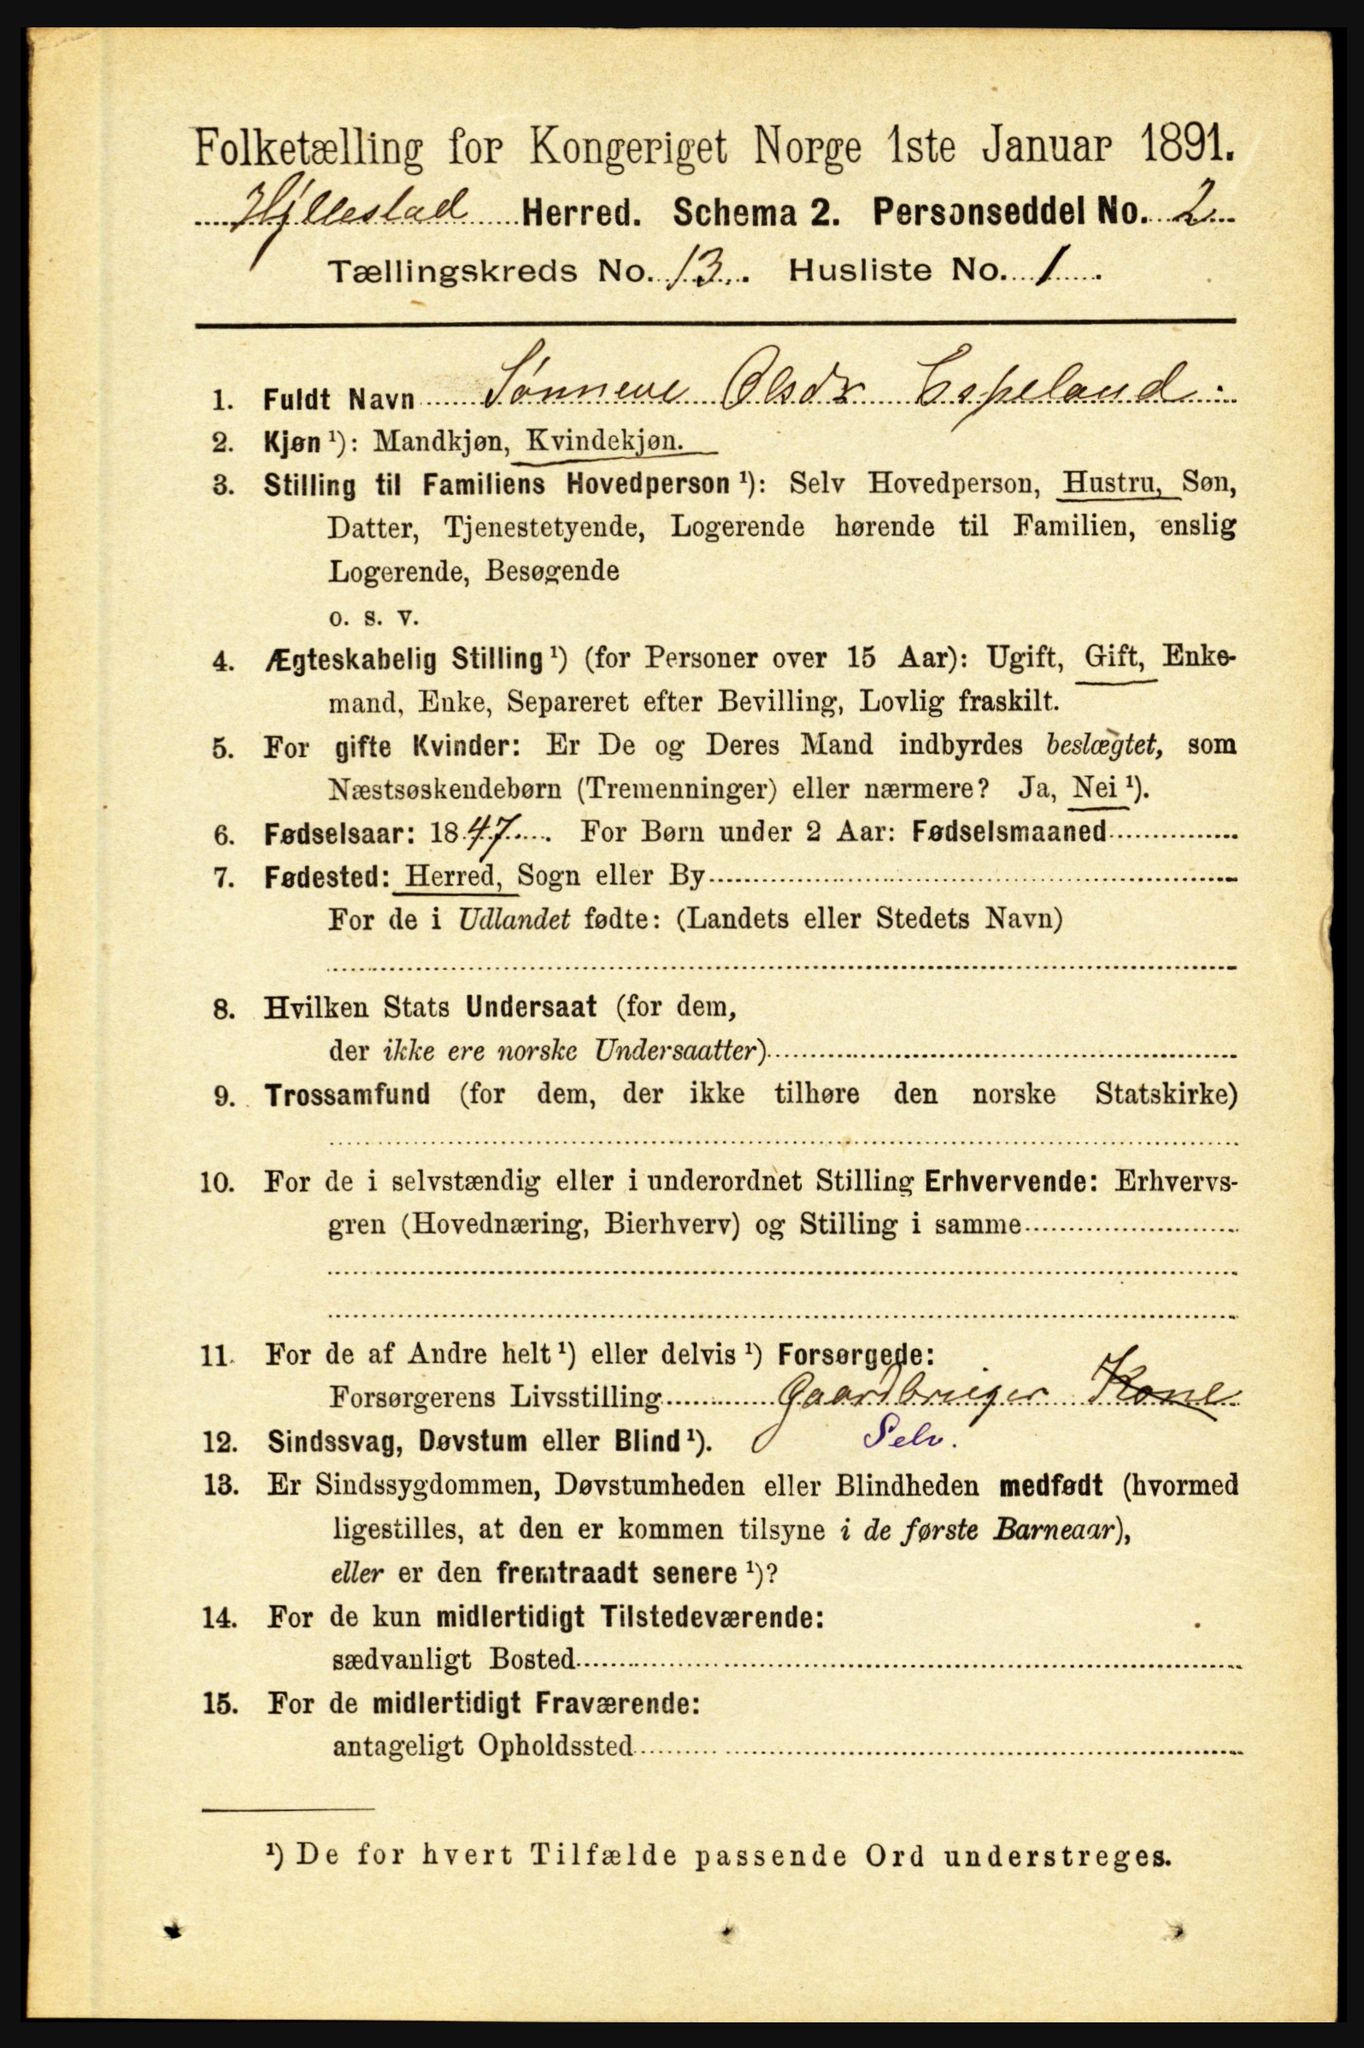 Folketælling for Kongeriget Norge 1ste Januar 1891.
Hyllestad Herred. Schema 2. Personseddel No. 2
Tællingskreds No. 13. Husliste No. 1
1. Fuldt Navn Sønneve Olsdr Espeland.
2. Kjøn ¹): Mandkjøn, Kvindekjøn.
3. Stilling til Familiens Hovedperson ¹): Selv Hovedperson, Hustru, Søn,
Datter, Tjenestetyende, Logerende hørende til Familien, enslig
Logerende, Besøgende
o. s. v.
4. Ægteskabelig Stilling ¹) (for Personer over 15 Aar): Ugift, Gift, Enke-
mand, Enke, Separeret efter Bevilling, Lovlig fraskilt.
5. For gifte Kvinder: Er De og Deres Mand indbyrdes beslægtet, som
Næstsøskendebørn (Tremenninger) eller nærmere? Ja, Nei ¹).
6. Fødselsaar: 1847. For Børn under 2 Aar: Fødselsmaaned
7. Fødested: Herred, Sogn eller By
For de i Udlandet fødte: (Landets eller Stedets Navn)
8. Hvilken Stats Undersaat (for dem,
der ikke ere norske Undersaatter)
9. Trossamfund (for dem, der ikke tilhøre den norske Statskirke)
10. For de i selvstændig eller i underordnet Stilling Erhvervende: Erhvervs-
gren (Hovednæring, Bierhverv) og Stilling i samme
11. For de af Andre helt ¹) eller delvis ¹) Forsørgede:
Forsørgerens Livsstilling Gaardbruger Kone
12. Sindssvag, Døvstum eller Blind ¹). Selv.
13. Er Sindssygdommen, Døvstumheden eller Blindheden medfødt (hvormed
ligestilles, at den er kommen tilsyne i de første Barneaar),
eller er den fremtraadt senere ¹)?
14. For de kun midlertidigt Tilstedeværende:
sædvanligt Bosted
15. For de midlertidigt Fraværende:
antageligt Opholdssted
¹) De for hvert Tilfælde passende Ord understreges.